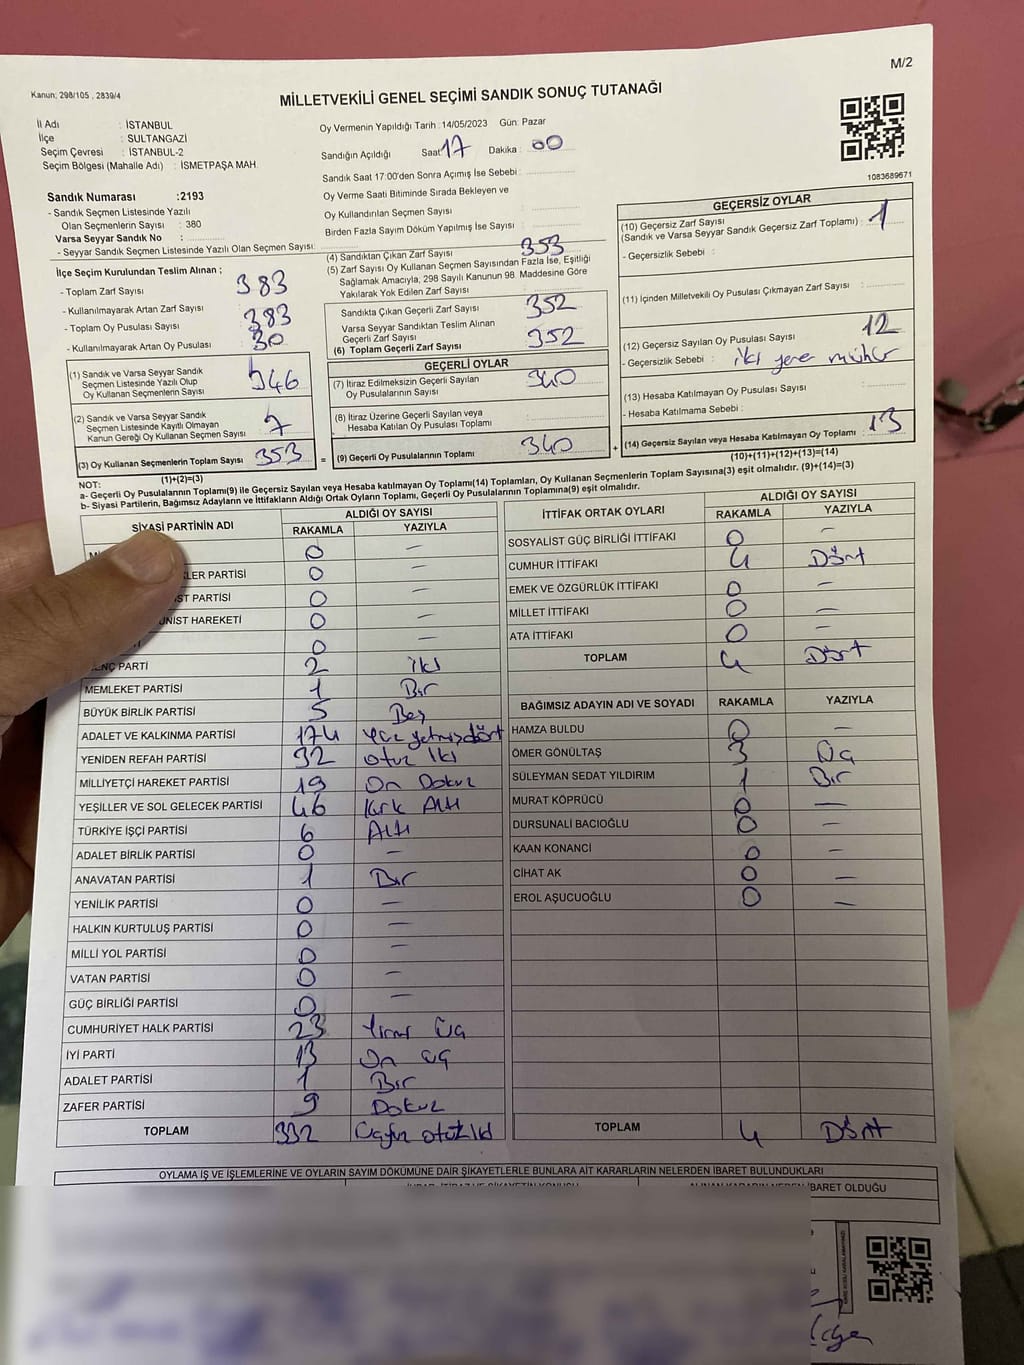 M/2
Kanun: 298/105 , 2839/4
MİLLETVEKİLİ GENEL SEÇİMİ SANDIK SONUÇ TUTANAĞI
İl Adı : İSTANBUL
İlçe : SULTANGAZİ
Seçim Çevresi : İSTANBUL-2
Seçim Bölgesi (Mahalle Adı) : İSMETPAŞA MAH.
Sandık Numarası :2193
- Sandık Seçmen Listesinde Yazılı
Olan Seçmenlerin Sayısı : 380
Varsa Seyyar Sandık No :
- Seyyar Sandık Seçmen Listesinde Yazılı Olan Seçmen Sayısı:
Oy Vermenin Yapıldığı Tarih : 14/05/2023 Gün: Pazar
Sandığın Açıldığı Saat 17 Dakika : 00
Sandık Saat 17:00'den Sonra Açımış İse Sebebi :
Oy Verme Saati Bitiminde Sırada Bekleyen ve
Oy Kullandırılan Seçmen Sayısı :
Birden Fazla Sayım Döküm Yapılmış İse Sayısı :
1083689671
İlçe Seçim Kurulundan Teslim Alınan ;
- Toplam Zarf Sayısı : 383
- Kullanılmayarak Artan Zarf Sayısı : 383
- Toplam Oy Pusulası Sayısı :
- Kullanılmayarak Artan Oy Pusulası : 30
(1) Sandık ve Varsa Seyyar Sandık
Seçmen Listesinde Yazılı Olup
Oy Kullanan Seçmenlerin Sayısı : 346
(2) Sandık ve Varsa Seyyar Sandık
Seçmen Listesinde Kayıtlı Olmayan
Kanun Gereği Oy Kullanan Seçmen Sayısı : 7
(3) Oy Kullanan Seçmenlerin Toplam Sayısı : 353
(1)+(2)=(3)
(4) Sandıktan Çıkan Zarf Sayısı : 353
(5) Zarf Sayısı Oy Kullanan Seçmen Sayısından Fazla İse, Eşitliği
Sağlamak Amacıyla, 298 Sayılı Kanunun 98. Maddesine Göre
Yakılarak Yok Edilen Zarf Sayısı :
Sandıkta Çıkan Geçerli Zarf Sayısı : 352
Varsa Seyyar Sandıktan Teslim Alınan
Geçerli Zarf Sayısı :
(6) Toplam Geçerli Zarf Sayısı : 352
GEÇERLİ OYLAR
(7) İtiraz Edilmeksizin Geçerli Sayılan
Oy Pusulalarının Sayısı : 340
(8) İtiraz Üzerine Geçerli Sayılan veya
Hesaba Katılan Oy Pusulası Toplamı :
= (9) Geçerli Oy Pusulalarının Toplamı : 340 +
GEÇERSİZ OYLAR
(10) Geçersiz Zarf Sayısı
(Sandık ve Varsa Seyyar Sandık Geçersiz Zarf Toplamı) : 1
- Geçersizlik Sebebi :
(11) İçinden Milletvekili Oy Pusulası Çıkmayan Zarf Sayısı :
(12) Geçersiz Sayılan Oy Pusulası Sayısı : 12
- Geçersizlik Sebebi : iki yere mühür
(13) Hesaba Katılmayan Oy Pusulası Sayısı :
- Hesaba Katılmama Sebebi :
(14) Geçersiz Sayılan veya Hesaba Katılmayan Oy Toplamı : 13
(10)+(11)+(12)+(13)=(14)
NOT:
a- Geçerli Oy Pusulalarının Toplamı(9) ile Geçersiz Sayılan veya Hesaba katılmayan Oy Toplamı(14) Toplamları, Oy Kullanan Seçmenlerin Toplam Sayısına(3) eşit olmalıdır. (9)+(14)=(3)
b- Siyasi Partilerin, Bağımsız Adayların ve İttifakların Aldığı Ortak Oyların Toplamı, Geçerli Oy Pusulalarının Toplamına(9) eşit olmalıdır.
SİYASİ PARTİNİN ADI ALDIĞI OY SAYISI
RAKAMLA YAZIYLA
0 —
LER PARTİSİ 0 —
ST PARTİSİ 0 —
NİST HAREKETİ 0 —
0 —
PARTİ 2 iki
MEMLEKET PARTİSİ 1 Bir
BÜYÜK BİRLİK PARTİSİ 5 Beş
ADALET VE KALKINMA PARTİSİ 174 Yüz yetmişdört
YENİDEN REFAH PARTİSİ 32 otuz iki
MİLLİYETÇİ HAREKET PARTİSİ 19 On Dokuz
YEŞİLLER VE SOL GELECEK PARTİSİ 46 Kırk Altı
TÜRKİYE İŞÇİ PARTİSİ 6 Altı
ADALET BİRLİK PARTİSİ 0 —
ANAVATAN PARTİSİ 1 Bir
YENİLİK PARTİSİ 0 —
HALKIN KURTULUŞ PARTİSİ 0 —
MİLLİ YOL PARTİSİ 0 —
VATAN PARTİSİ 0 —
GÜÇ BİRLİĞİ PARTİSİ 0 —
CUMHURİYET HALK PARTİSİ 23 Yirmi Üç
İYİ PARTİ 13 On üç
ADALET PARTİSİ 1 Bir
ZAFER PARTİSİ 9 Dokuz
TOPLAM 332 Üçyüz otuz iki
İTTİFAK ORTAK OYLARI ALDIĞI OY SAYISI
RAKAMLA YAZIYLA
SOSYALİST GÜÇ BİRLİĞİ İTTİFAKI 0 —
CUMHUR İTTİFAKI 4 Dört
EMEK VE ÖZGÜRLÜK İTTİFAKI 0 —
MİLLET İTTİFAKI 0 —
ATA İTTİFAKI 0 —
TOPLAM 4 Dört
BAĞIMSIZ ADAYIN ADI VE SOYADI RAKAMLA YAZIYLA
HAMZA BULDU 0 —
ÖMER GÖNÜLTAŞ 3 Üç
SÜLEYMAN SEDAT YILDIRIM 1 Bir
MURAT KÖPRÜCÜ 0 —
DURSUNALİ BACIOĞLU 0 —
KAAN KONANCİ 0 —
CİHAT AK 0 —
EROL AŞUCUOĞLU 0 —
TOPLAM 4 Dört
OYLAMA İŞ VE İŞLEMLERİNE VE OYLARIN SAYIM DÖKÜMÜNE DAİR ŞİKAYETLERLE BUNLARA AİT KARARLARIN NELERDEN İBARET BULUNDUKLARI
İBARET OLDUĞU